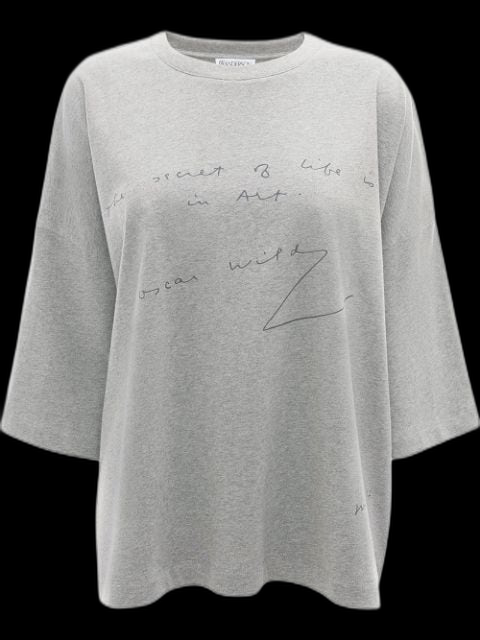 JW ANDERSON
the secret of life is
in Art.
oscar wilde